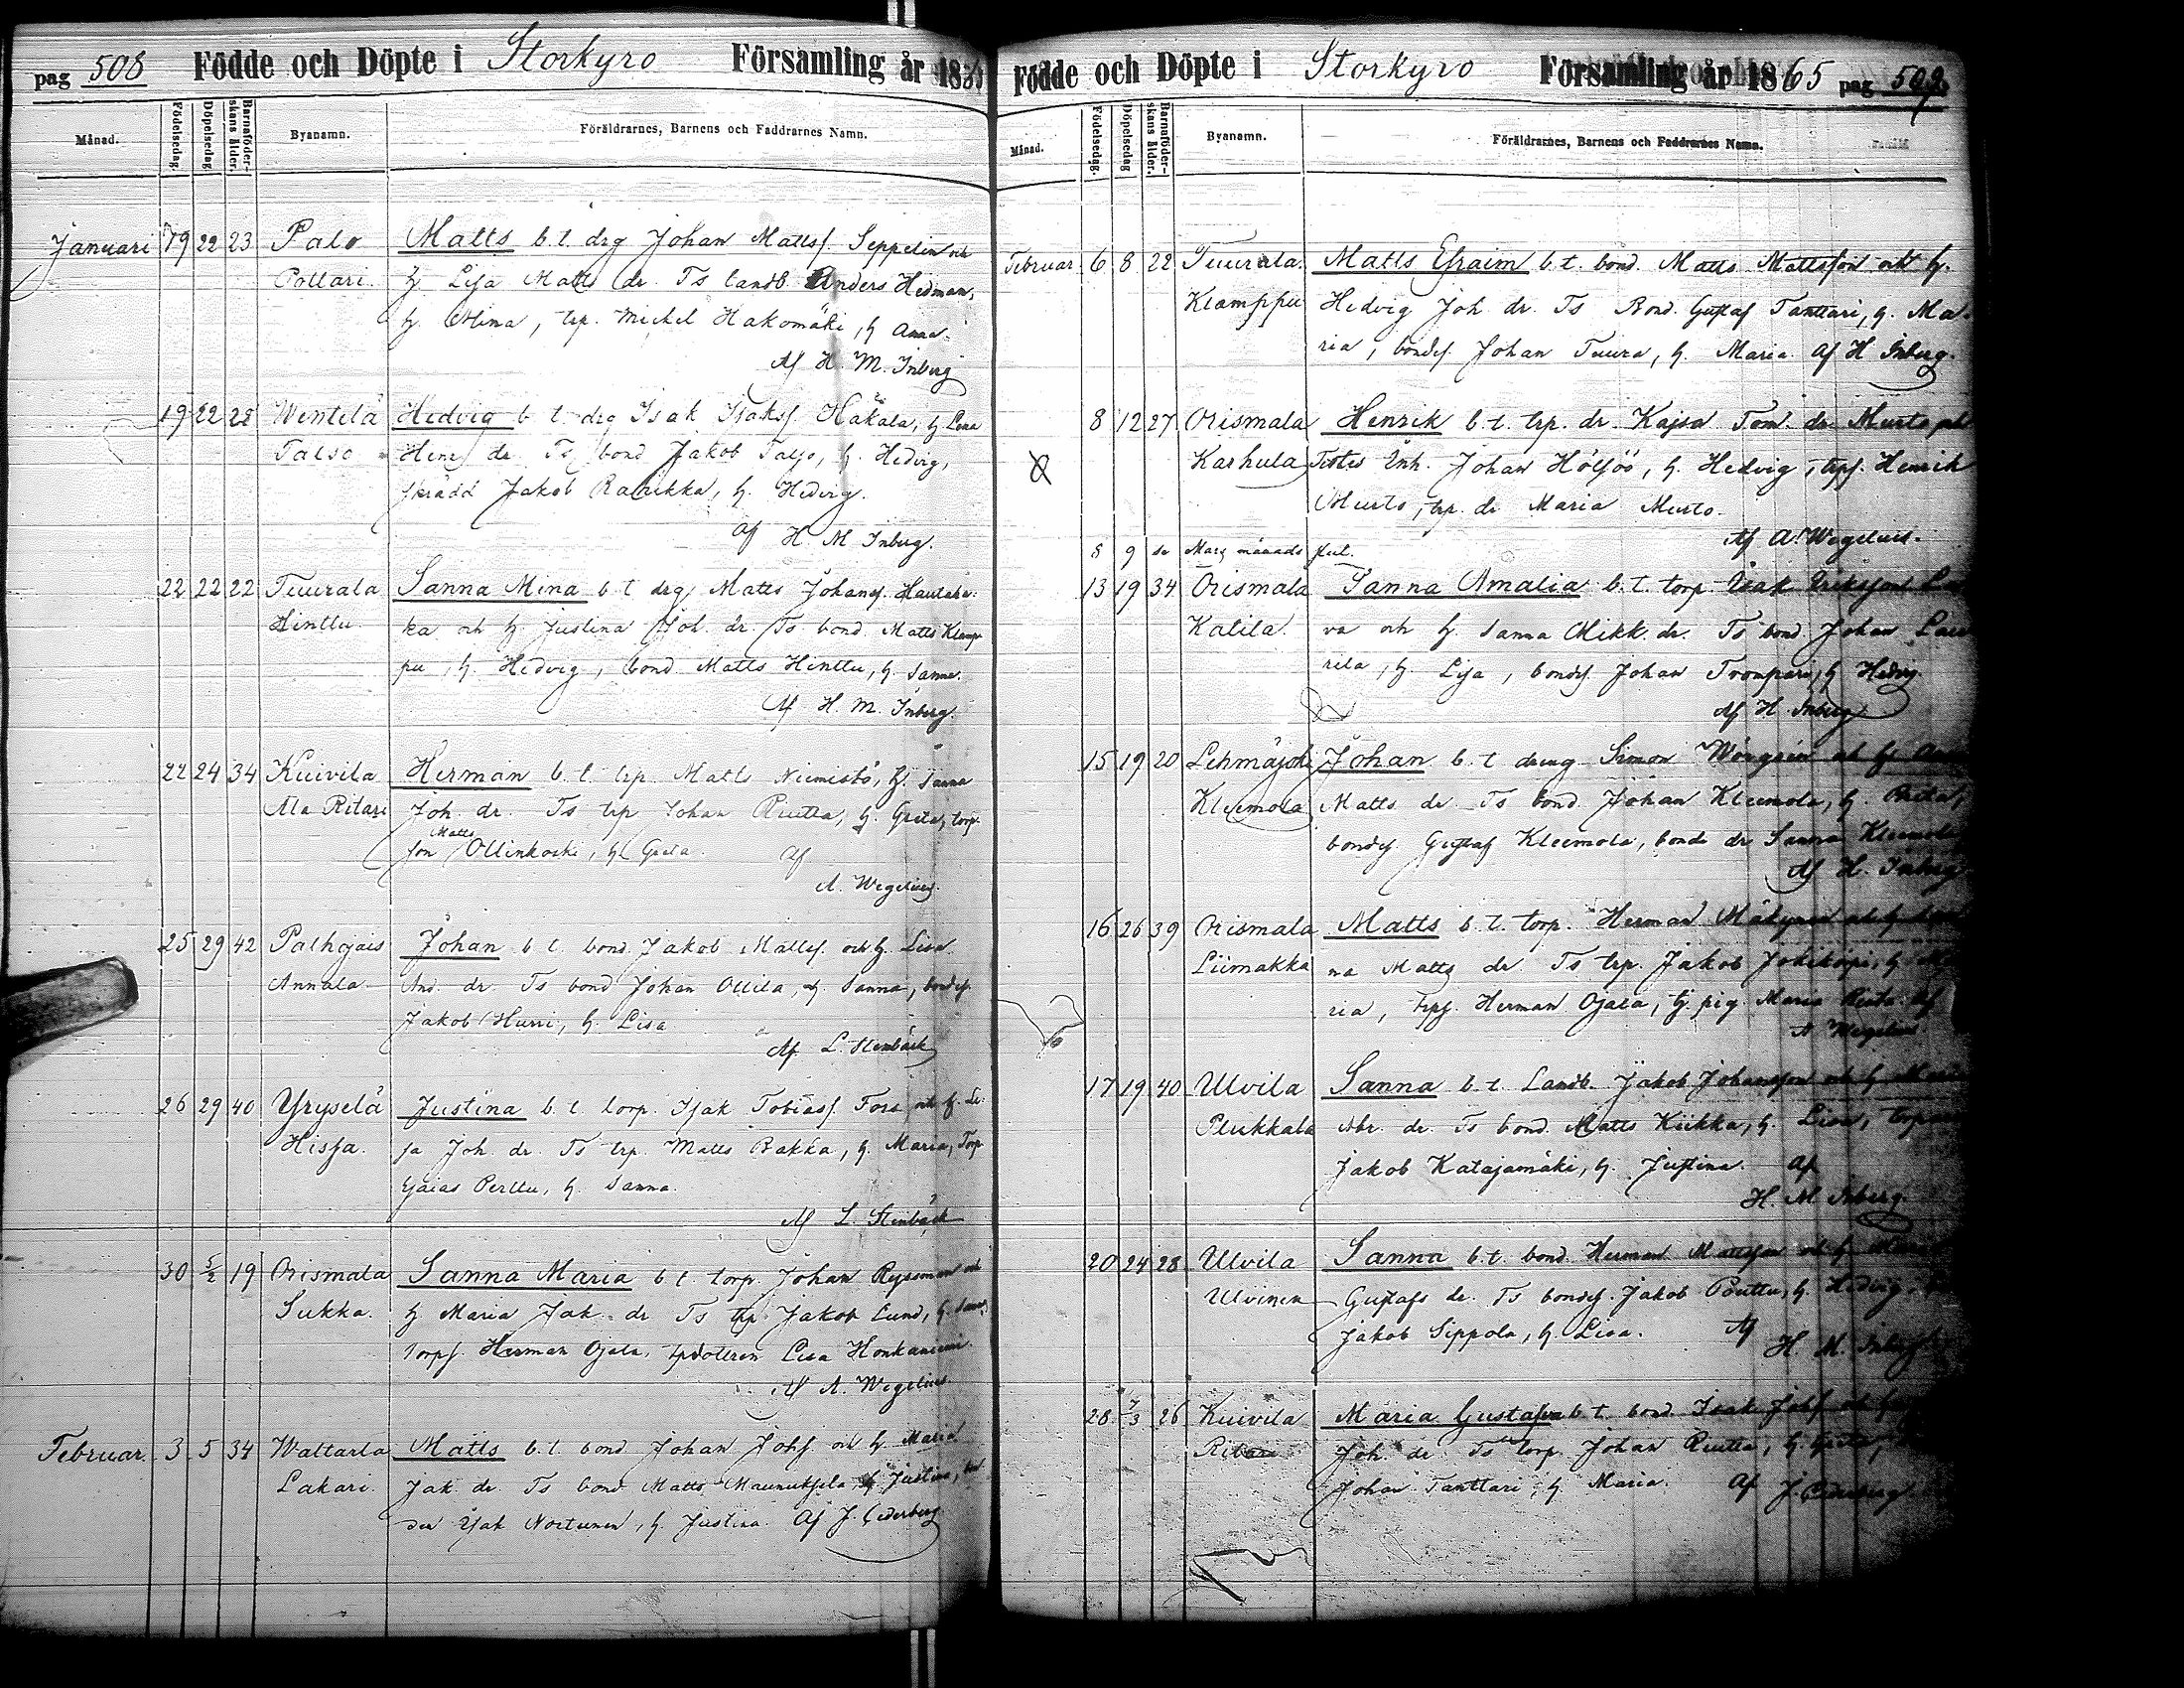 pag 508 Födde och Döpte i Storkyro Församling år 18
Månad. Födelsedag Döpelsedag Barnaföderskans ålder. Byanamn. Föräldrarnes, Barnens och Faddrarnes Namn.
Januari 19 22 23 Palo Matts b. t. drg Johan Mattss. Seppelin och
Pollari. h. Lisa Matts dr. Ts landb. Anders Hedman,
h. Mina, trp. Michel Hakomäki, h Anna.
Af H. M. Inberg
19 22 28 Wentelä Hedvig b t. drg Isak Isakss. Hakala, h Lena
Talso Henr dr. Ts bond Jakob Talso, h. Hedvig,
skrädd Jakob Rabikka, h. Hedvig.
Af H. M Inberg.
22 22 22 Tuurala Sanna Mina b t drg Matts Johans.
Hinttu. ka och h. Justina Joh. dr. Ts bond. Matts Klamp
pu, h. Hedvig, bond Matts Hinttu, h. Sanna.
Af H. M. Inberg.
22 24 34 Kuivila Herman b. t. trp. Matts Niemistö, h. Sanna
Ala Ritari Joh. dr. Ts trp Johan Riutta, h. Greta, torp.
Matts
son Ollinkoski, h. Greta. Af
A. Wegelius.
25 29 42 Palhojais Johan b t. bond. Jakob Mattss. och h. Lisa
Annala And. dr. Ts bond Johan Ollila, h. Sanna, bondes.
Jakob Hurri, h. Lisa
Af L. Stenbäck
26 29 40 Yryselä Justina b. t. torp. Isak Tobiass. Fors och h. Li
Hissa. sa Joh. dr. Ts trp. Matts Bakka, h. Maria, Torp
Esaias Perttu, h. Sanna.
Af L. Stenbäck
30 5/2 19 Orismala Sanna Maria b t. torp. Johan Rysman och
Sukka. h Maria Jak. dr Ts trp Jakob Lund, h. Sanna,
torps. Herman Ojala, trpdottren Lisa Honkaniemi.
Af A. Wegelius.
Februar. 3 5 34 Wattarla Matts b. t. bond Johan Johs. och h Maria
Lakari. Jak. dr. Ts bond Matts Maunuksela h Justina,
den Isak Nortunen, h. Justina. Af J. Cederberg
Födde och Döpte i Storkyro Församling år 1865 pag 509
Månad. Födelsedag. Döpelsedag Barnaföderskans ålder. Byanamn. Föräldrarnes, Barnens och Faddrarnes Namn.
Februar. 6 8 22 Tuurala. Matts Efraim b. t. bond. Matts Mattsson och h.
Klamppu Hedvig Joh. dr. Ts Bond. Gustaf Tanttari, h. Ma
ria, bondes. Johan Tuura, h. Maria. Af H Inberg.
8 12 27 Orismala Henrik b. t. trp. dr. Kajsa Tom. dr. Murto
Karhula Testes Inh. Johan Hölsöö, h. Hedvig, trps. Henrik
Murto, trp. dr Maria Murto.
Af A. Wegelius.
8 9 Mars månads slut.
13 19 34 Orismala Sanna Amalia b. t. torp. Isak Eriksson
Kalila. va och h. Sanna Mikk. dr. Ts bond Johan
rila, h Lisa, bondes. Johan h Hedvig.
Af H. Inberg
15 19 20 Lehmäjoki Johan b. t dreng Simon Wöngren och h.
Kleemola Matts dr. Ts bond. Johan Kleemola, h. Brita,
bondes. Gustaf Kleemola, bonde dr Sanna Kleemola
Af H. Inberg
16 26 39 Orismala Matts b. t. torp. Herman Mäkynen och h.
Liimakka na Matts dr. Ts trp. Jakob h.
ria, trps. Herman Ojala, tj. pig. Maria Af
A. Wegelius
17 19 40 Ulvila Sanna b. t. Landb. Jakob Johansson och h. Maria
Plukkala Abr. dr. Ts bond. Matts Kiikka, h. Lisa, torp
Jakob Katajamäki, h. Justina. Af
H. M. Inberg.
20 24 28 Ulvila Sanna b. t. bond. Herman Mattsson och h.
Ulvinen Gustafs dr. Ts bondes. Jakob Pouttu, h. Hedvig,
Jakob Sippola, h. Lisa. Af
H. M. Inberg
28 7/3 26 Kuivila Maria Gustafva b. t. bond. Isak Johs. och
Ritari Joh. dr. Ts torp. Johan Riutta, h. Greta,
Johan Tanttari, h. Maria. Af J. Cederberg